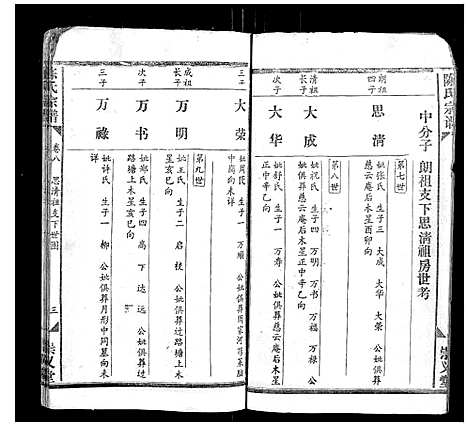 陳氏宗譜
中分子 朗祖支下思清祖房世考
第七世
朗祖四子
思清
妣張氏 生子三 大成 大华 大荣 公妣俱葬
慈云庵后木星酉卯向
第八世
清祖長子
大成
妣祝氏 生子四 万明 万书 万福 万禄 公
妣俱葬慈云庵后木星正中辛乙向
次子
大华
妣舒氏 生子一 万寿 公妣俱葬慈云庵后木星
正中辛乙向
三子
大荣
妣周氏 生子一 万順
中向未详
第九世
成祖長子
万明
妣王氏 生子二 启 公妣俱葬过路塘上木
星亥巳向
次子
万书
妣郑氏 生子四 高 下 达 远 公妣俱葬过
路塘上木星亥巳向
三子
万祿
妣許氏 生子一 柳 公妣俱葬月形中间墓向未
详
陳氏宗譜
卷八 思清祖支下世图
三
崇义堂